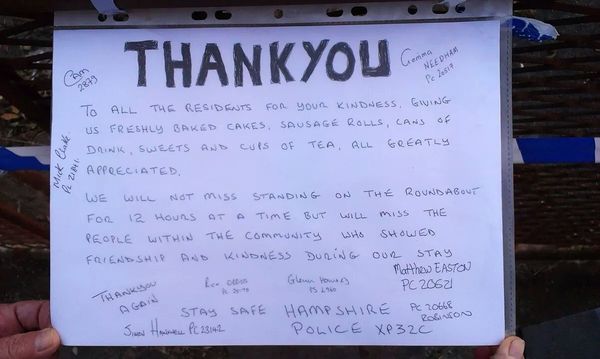 THANKYOU
Gemma
NEEDHAM
PC 20517
2879
TO ALL THE RESIDENTS FOR YOUR KINDNESS, GIVING
US FRESHLY BAKED CAKES, SAUSAGE ROLLS, CANS OF
DRINK, SWEETS AND CUPS OF TEA, ALL GREATLY
APPRECIATED.
Mick Clarke
WE WILL NOT MISS STANDING ON THE ROUNDABOUT
FOR 12 HOURS AT A TIME BUT WILL MISS THE
PEOPLE WITHIN THE COMMUNITY WHO SHOWED
FRIENDSHIP AND KINDNESS DURING OUR STAY
THANKYOU
AGAIN
Glenn
Matthew EASTON
PC 20621
STAY SAFE HAMPSHIRE
POLICE XP32C
PC 20668
ROBINSON
PC 23142